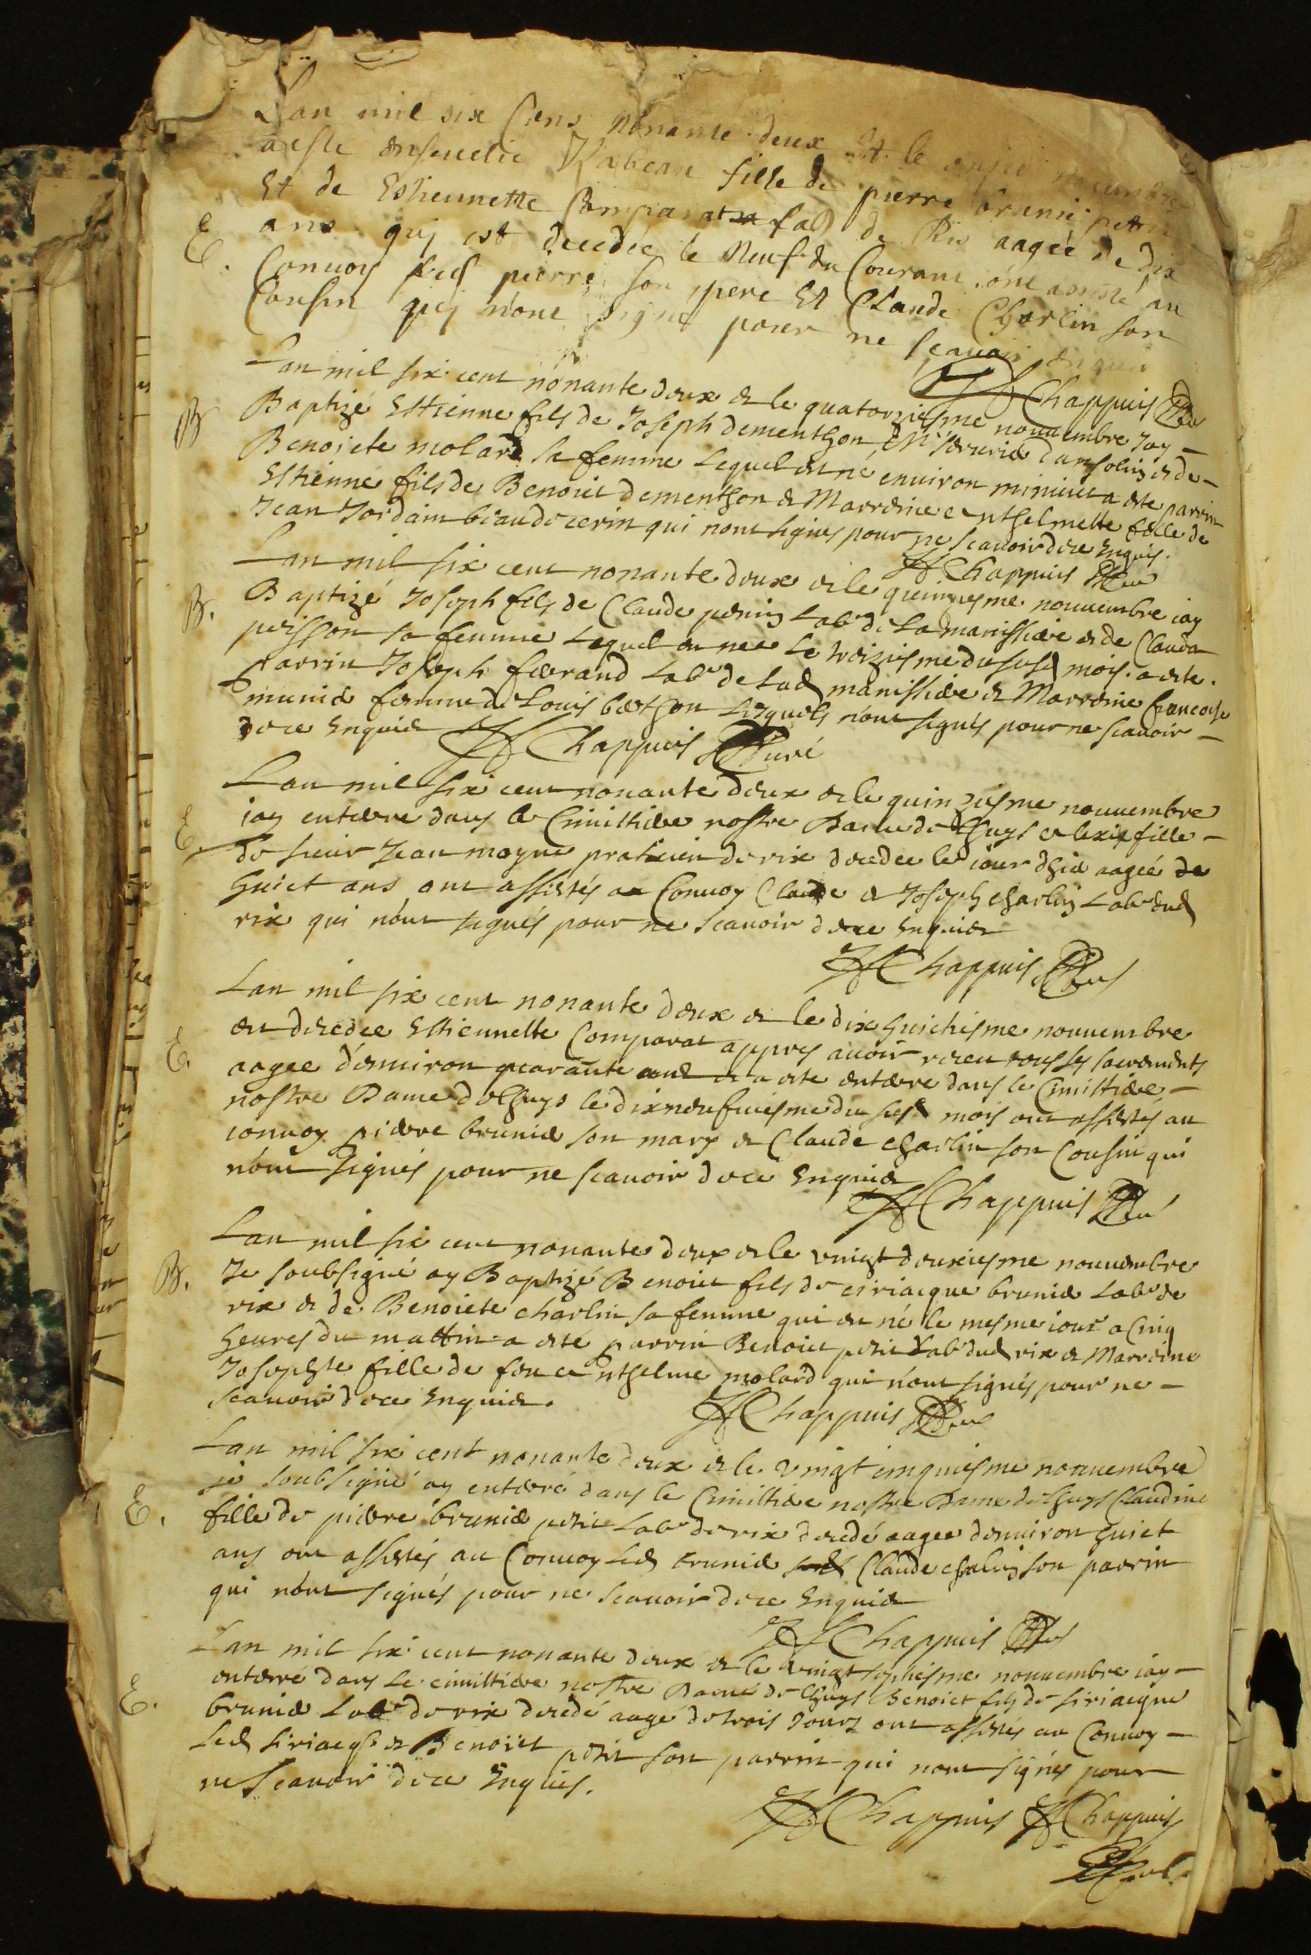 Lan mil six Cens nonante deux Et le onzie nouembre
a este enseuelie Ysabeau fille de pierre brunie petit
Et de Estiennette Comparat sa f de Rix aagée de dix
E. ans quj est decedée le Neuf du Courant ont assisté au
Conuoy led pierre son pere Et Claude Charlin son
Cousin quj n'ont signé pour ne scauoir enquis
JF Chappuis Curé
Lan mil six cent nonante deux & le quatorziesme nouuembre Jay –
B Baptizé Estienne fils de Joseph dementhon & de –
Benoiete molard sa femme Lequel est né enuiron minuict a este parrin
Estienne fils de Benoict dementhon & Marrenie Anthelmette fille de
Jean Jordain qui nont signés pour ne scauoir dece Enquis.
JF Chappuis Curé
Lan mil six cent nonante deux & le quinziesme nouuembre iay
B. Baptizé Joseph fils de Claude perrin Lab de La manissiere & de Clauda
poisson sa femme Lequel est nee Le treiziesme du susd mois. a este.
Parrin Joseph ferrand Lab de Lad manissiere & Marrenie francoise
munier femme de Louis berthon Lesquels nont signés pour ne scauoir –
dece Enquis JF Chappuis Curé
Lan mil six cent nonante deux & le quinziesme nouuembre
E. iay enterre dans le Cimithiere nostre Dame de Lhuys Alexie fille –
de sieur Jean moyne praticien de rix decedee le iour dhier aagée de
huict ans ont assistés au Conuoy Claude & Joseph charlin Lab dud
rix qui nont signés pour ne scauoir dece Enquis
JF Chappuis Curé
Lan mil six cent nonante deux & le dix huictiesme nouuembre
E. est decedee Estiennette Comparat appres auoir receu tous ses sacrements
aagee denuiron quarante ans & a este enterre dans le Cimittiere –
nostre Dame de Lhuys le dix neufuiesme du susd mois ont assistés au
conuoy pierre brunie son mary & Claude charlin son Cousin qui
nont signés pour ne scauoir dece Enquis
JF Chappuis Curé
Lan mil six cent nonante deux & le vingt deuxiesme nouuembre
B. Je soubsigné ay Baptizé Benoict fils de ciriacque brunie Lab de
rix & de Benoiete charlin sa femme qui est né le mesme iour a Cinq
heures du mattin a este parrin Benoict petit Lab dud rix & Marreine
Josephte fille de feu Anthelme molard qui nont signés pour ne –
scauoir dece Enquis. JF Chappuis Curé
Lan mil six cent nonante deux & le vingt cinquiesme nouuembre
E. je soubsigné ay enterré dans le Cimittiere nostre Dame de Lhuys Claudine
fille de pierre brunie petit Lab de rix decedé aagee denuiron huict
ans ont assistés au Conuoy Led brunie Claude chalin son parrin
qui nont signés pour ne scauoir dece Enquis
JF Chappuis Curé
Lan mil six cent nonante deux & le vingt septiesme nouuembre iay –
E. enterre dans le cimittiere nostre Dame de Lhuys Benoict fils de siriacque
brunie Lab de rix decedé aage de trois Jours ont assistés au Conuoy –
Led siriacque & Benoict petit son parrin qui nont signés pour
ne scauoir dece Enquis.
JF Chappuis JF Chappuis
Curé